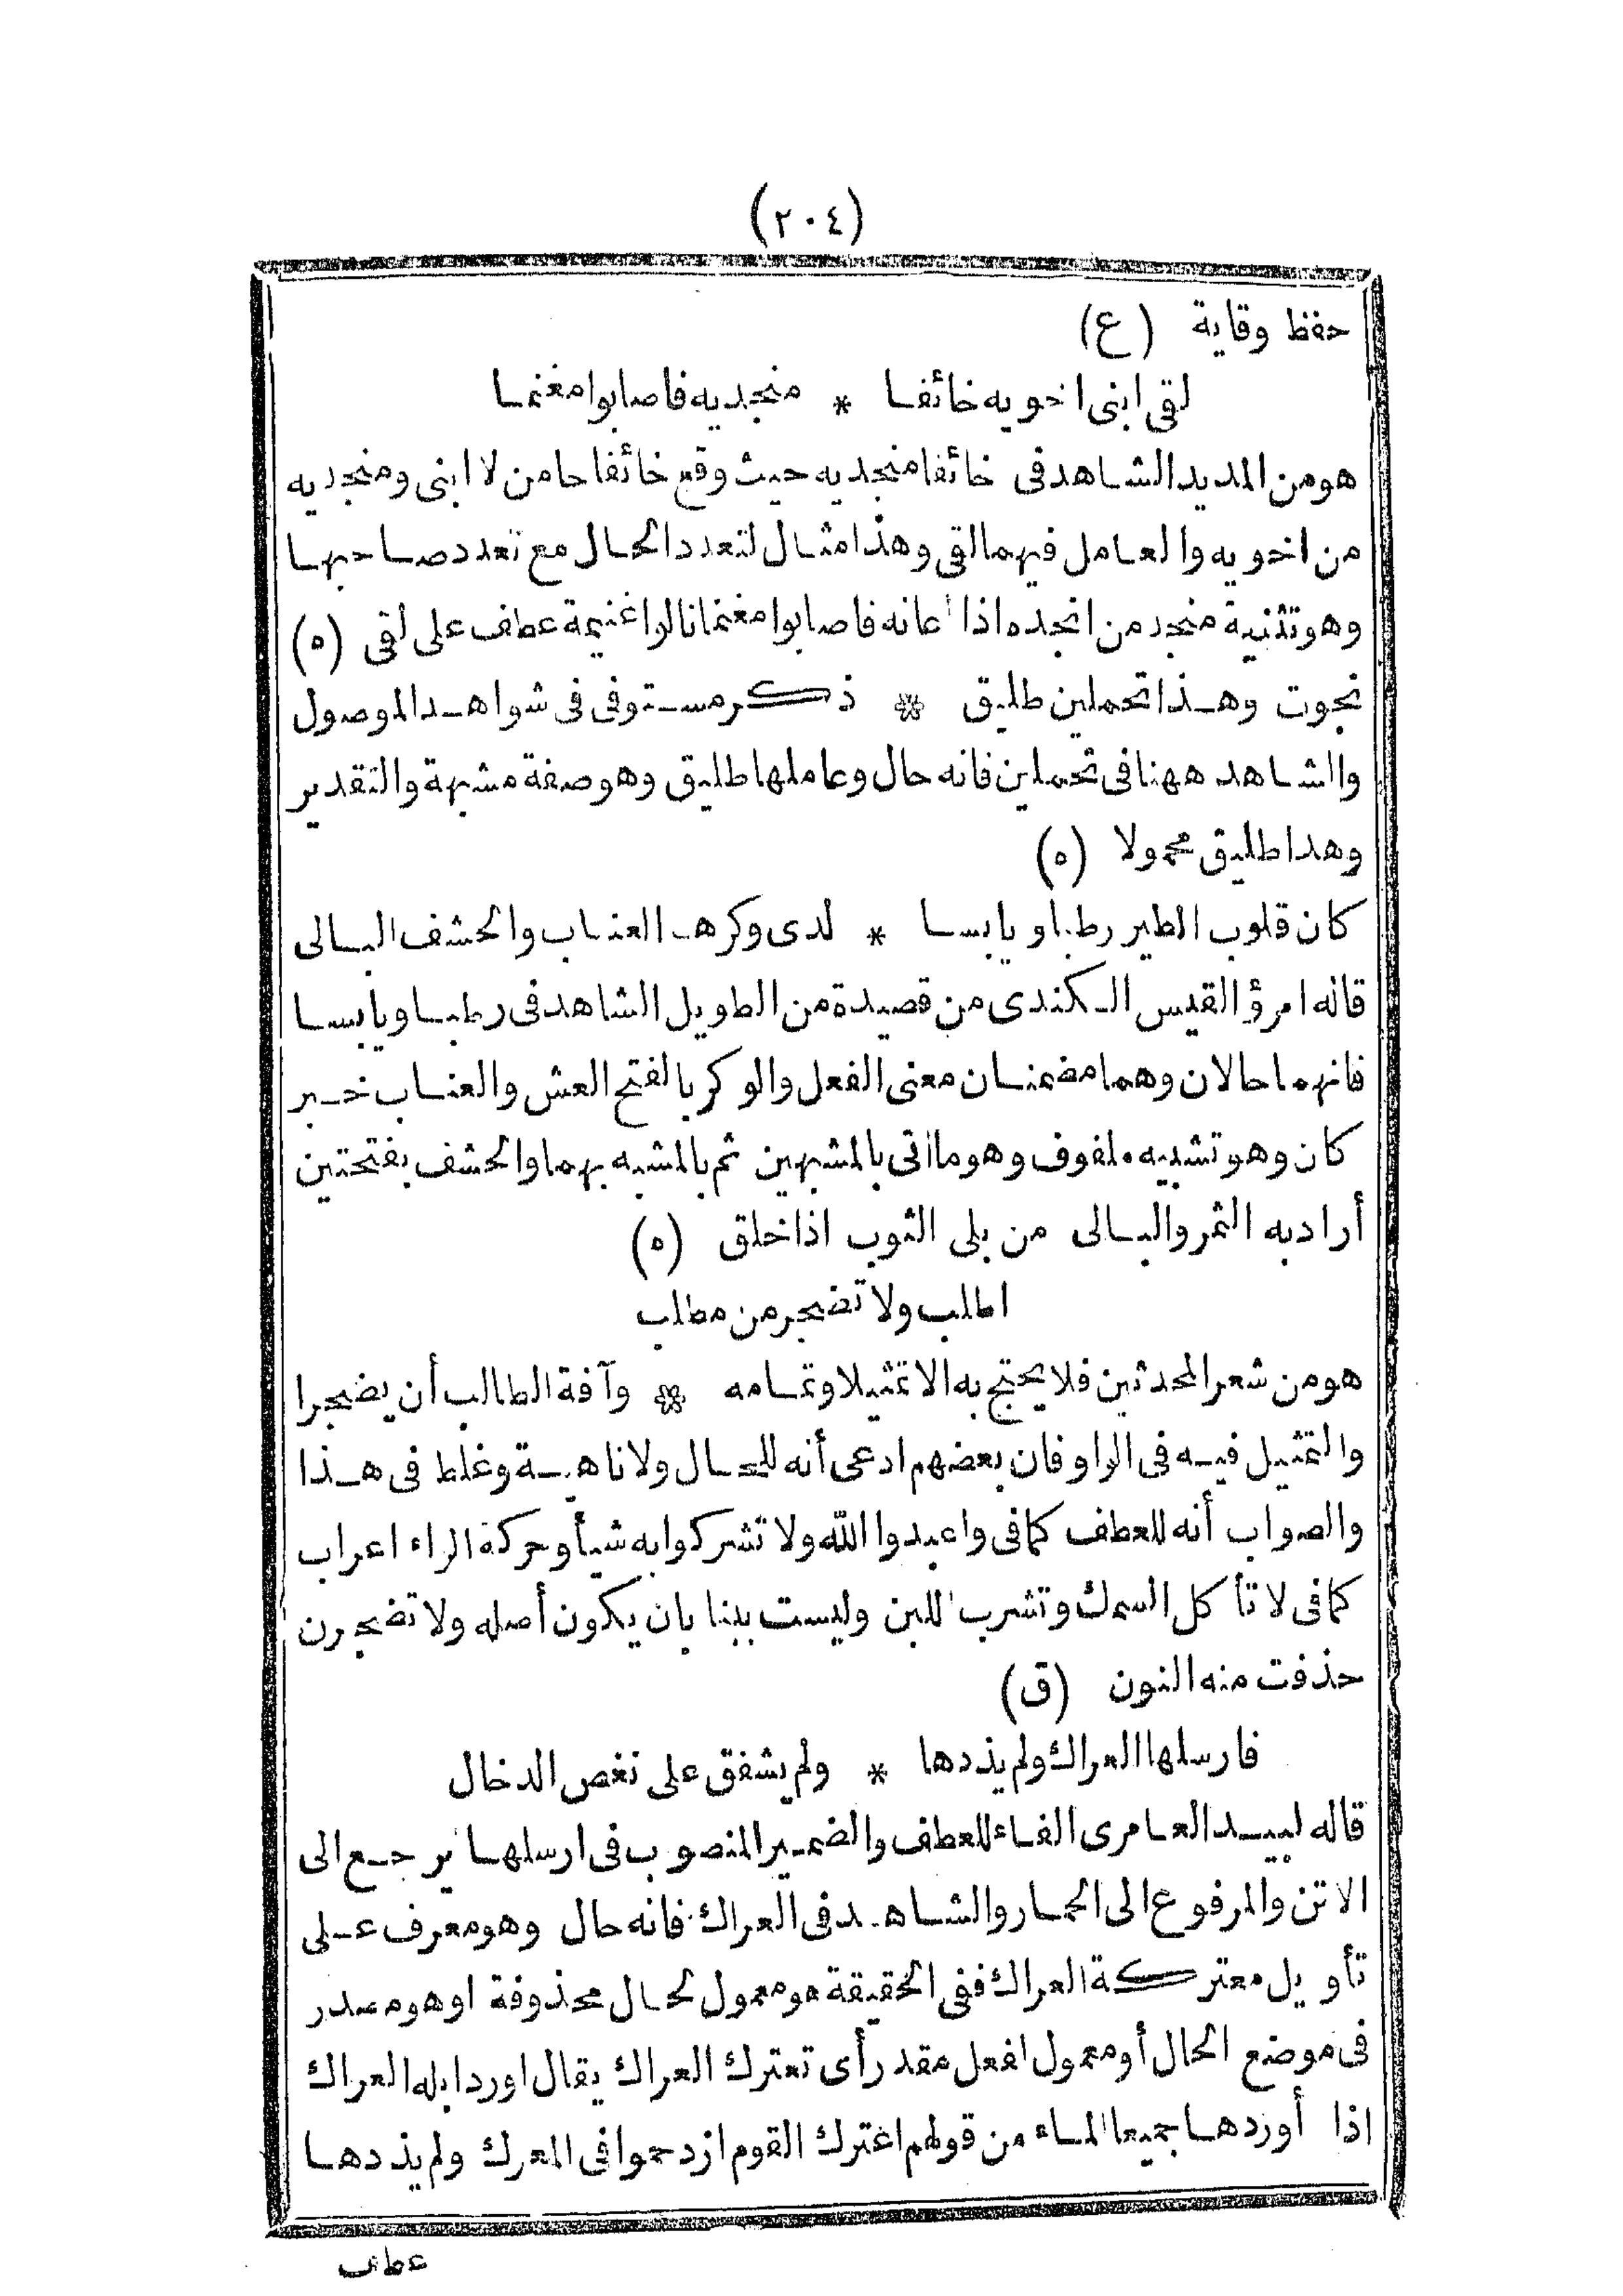 (٢٠٤)
حفظ وقاية (ع)
لقى ابنى اخويه خائفا * منجديه فاصابوا مغنما
هو من المديد الشاهد فى خائفا منجديه حيث وقع خائفا حا من لا ابنى ومنجديه
من اخويه والعامل فيهما لقى وهذا مثال لتعدد الحال مع تعدد صاحبها
وهو تثنية منجد من انجده اذا أعانه فاصابوا مغنما نالوا غنيمة عطف على لقى (ه)
نجوت وهذا تحملين طليق * ذكر مستوفى فى شواهد الموصول
والشاهد ههنا فى تحملين فانه حال وعاملها طليق وهو صفة مشبهة والتقدير
وهذا طليق محمولا (ه)
كان قلوب الطير رطبا ويابسا * لدى وكرها العناب والحشف البالى
قاله امرؤ القيس الكندى من قصيدة من الطويل الشاهد فى رطبا ويابسا
فانهما حالان وهما مضمنان معنى الفعل والوكر بالفتح العش والعناب خبر
كان وهو تشبيه ملفوف وهو ما اتى بالمشبهين ثم بالمشبه بهما والحشف بفتحتين
أراد به الثمر والبالى من بلى الثوب اذا خلق (ه)
اطلب ولا تضجر من مطلب
هو من شعر المحدثين فلا يحتج به الا تمثيلا وتمامه * وآفة الطالب أن يضجرا
والتمثيل فيه فى الواو فان بعضهم ادعى أنه للحال ولا ناهية وغلط فى هذا
والصواب أنه للعطف كما فى واعبدوا الله ولا تشركوا به شيأ وحركة الراء اعراب
كما فى لا تأكل السمك وتشرب اللبن وليست بينا بان يكون أصله ولا تضجرن
حذفت منه النون (ق)
فارسلها العراك ولم يذدها * ولم يشفق على نغص الدخال
قاله لبيد العامرى الفاء للعطف والضمير المنصوب فى ارسلها يرجع الى
الاتن والمرفوع الى الحمار والشاهد فى العراك فانه حال وهو معرف على
تأويل معتركة العراك ففى الحقيقة هو معمول لحال محذوفة او هو مصدر
فى موضع الحال أو معمول لفعل مقدر أى تعترك العراك يقال اورد ابله العراك
اذا أوردها جميعا الماء من قولهم اغترك القوم ازدحموا فى المعرك ولم يذدها
عطف